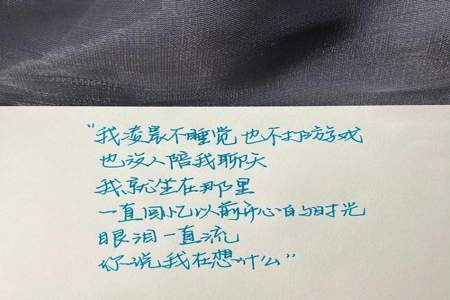 "我凌晨不睡觉也不打游戏
也没人陪我聊天
我就坐在那里
一直回忆以前开心的时光
眼泪一直流
你说我在想什么"